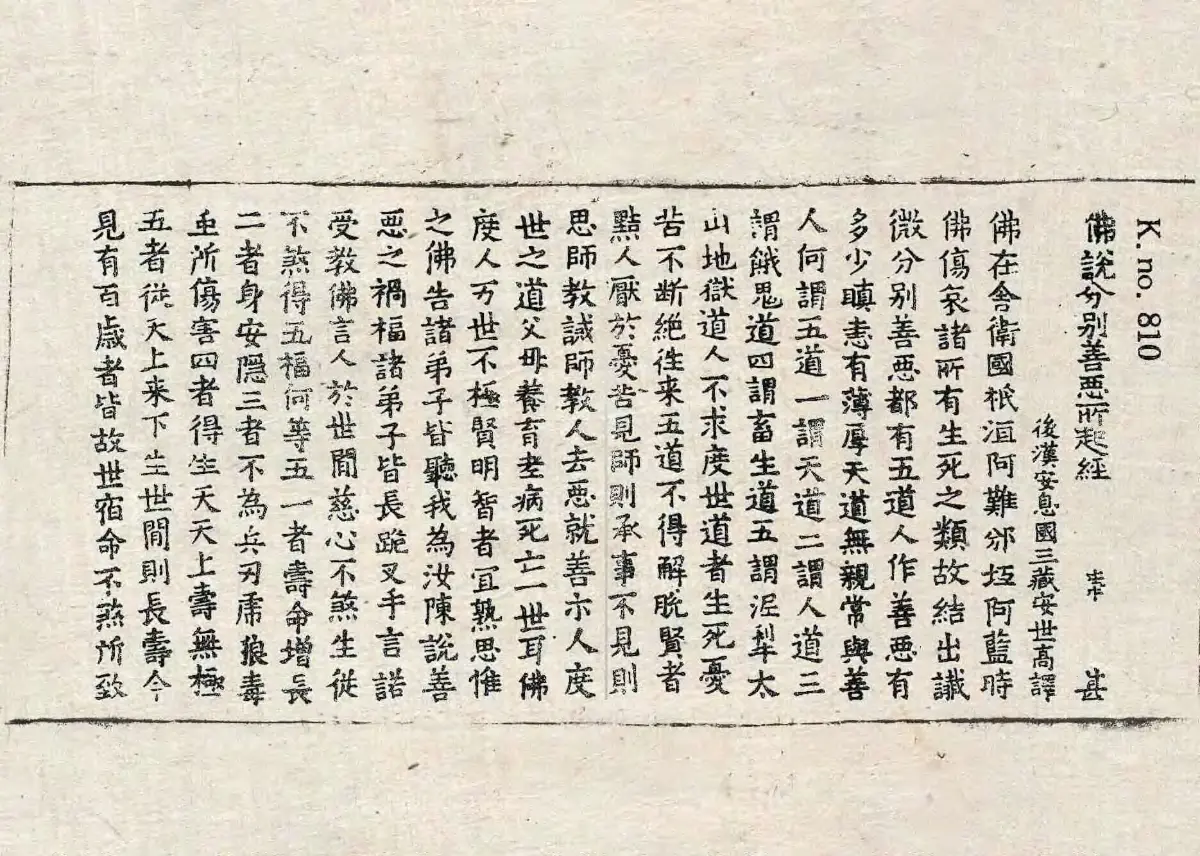 K.no. 810
佛說分別善悪所起經 甚
後漢安息國三藏安世高譯
佛在舍衛國祇洹阿難邠坻阿藍時
佛傷哀諸所有生死之類故結出讖
微分別善悪都有五道人作善悪有
多少瞋恚有薄厚天道無親常與善
人何謂五道一謂天道二謂人道三
謂餓鬼道四謂畜生道五謂泥犁太
山地獄道人不求度世道者生死憂
苦不断絶往来五道不得解脱賢者
黠人厭於憂苦見師則承事不見則
思師教誡師教人去悪就善示人度
世之道父母養育老病死亡一世耳佛
度人万世不極賢明智者宜熟思惟
之佛告諸弟子皆聽我為汝陳說善
悪之禍福諸弟子皆長跪叉手言諾
受教佛言人於世間慈心不煞生從
不煞得五福何等五一者壽命增長
二者身安隱三者不為兵刃虎狼毒
虫所傷害四者得生天天上壽無極
五者從天上来下生世間則長壽今
見有百歲者皆故世宿命不煞所致